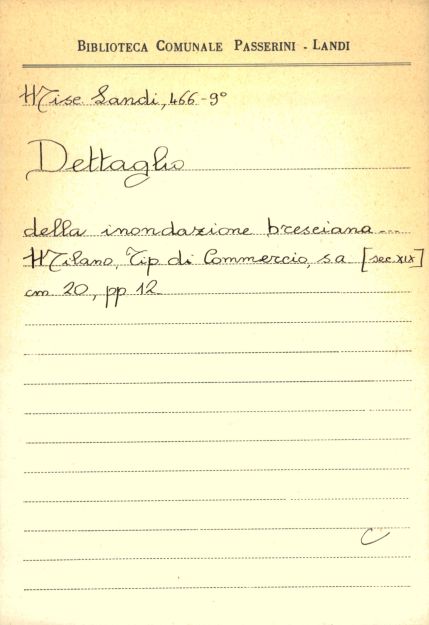 BIBLIOTECA COMUNALE PASSERINI - LANDI
Misc. Landi, 466-9°
Dettaglio
della inondazione bresciana...
Milano, Tip di Commercio, s.a [sec. XIX]
cm 20, pp 12
C